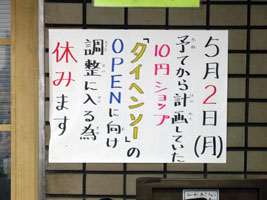 5月2日(月)
予てから計画していた
10円ショップ
「タイヘンソー」の
OPENに向け
調整に入る為
休みます